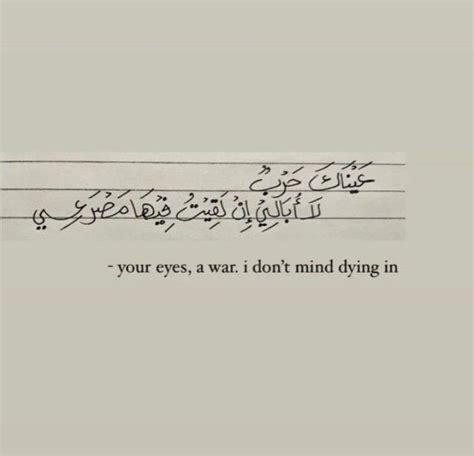 عَيْنَاكَ حَرْبٌ
لَا أُبَالِيْ إِنْ لَقِيْتُ فِيْهَا مَصْرَعِي
- your eyes, a war. i don't mind dying in